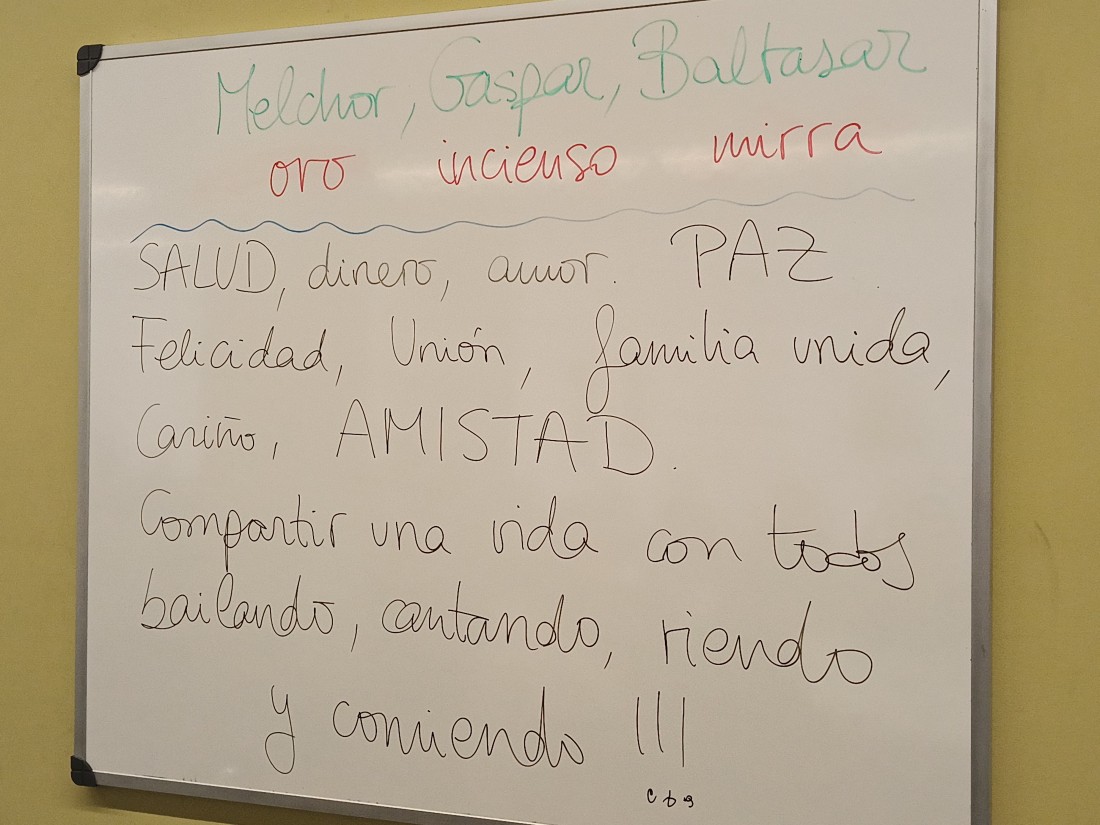 Melchor, Gaspar, Baltasar
oro incienso mirra
SALUD, dinero, amor. PAZ.
Felicidad, Unión, familia unida,
Cariño, AMISTAD.
Compartir una vida con todos
bailando, cantando, riendo
y comiendo !!!